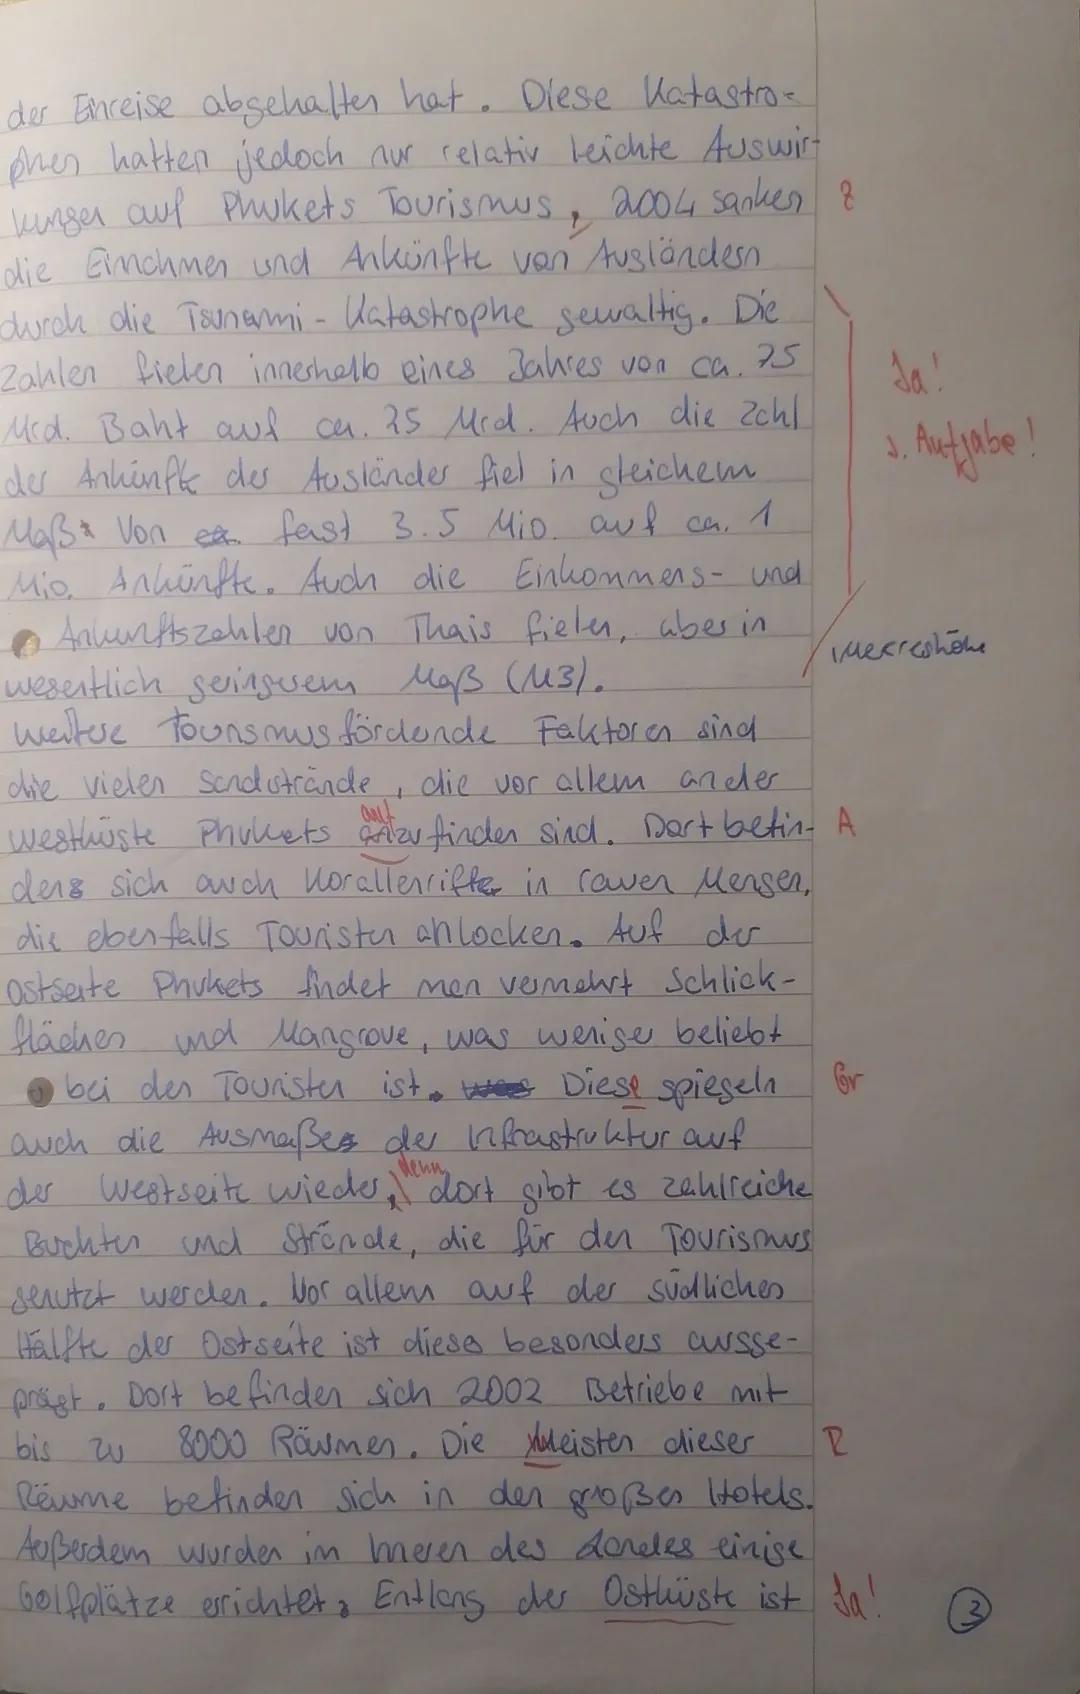 der Einreise abgehalten hat. Diese Katastro-
phen hatten jedoch nur relativ leichte Auswir-
kungen auf Phukets Tourismus, 2004 sanken
Z
die Einnahmen und Ankünfte von Ausländern
durch die Tsunami-Katastrophe gewaltig. Die
Zahlen fielen innerhalb eines Jahres von ca. 75
Ja!
Mrd. Baht auf ca. 25 Mrd. Auch die Zahl
s. Aufgabe!
der Ankünfte der Ausländer fiel in gleichem
Maß: Von fast 3.5 Mio. auf ca. 1
Mio. Ankünfte. Auch die Einkommens- und
Ankunftszahlen von Thais fielen, aber in
wesentlich geringerem Maß (M3).
Weitere Tourismusfördende Faktoren sind
die vielen Sandstrände, die vor allem an der
Westküste Phukets auf zufinden sind. Dort befin-
A
den sich auch Korallenriffe in rauen Mengen,
die ebenfalls Touristen anlocken. Auf der
Ostseite Phukets findet man vermehrt Schlick-
flächen und Mangrove, was weniger beliebt
bei den Touristen ist. Diese spiegeln
Gr
auch die Ausmaße der Infrastruktur auf
der Westseite wieder, denn dort gibt es zahlreiche
Buchten und Strände, die für den Tourismus
genutzt werden. Vor allem auf der südlichen
Hälfte der Ostseite ist dieses besonders ausge-
prägt. Dort befinden sich 2002 Betriebe mit
bis zu 8000 Räumen. Die Meisten dieser
R
Räume befinden sich in den großen Hotels.
Außerdem wurden im Inneren des Landes einige
Golfplätze errichtet. Entlang der Ostküste ist
Ja!
3